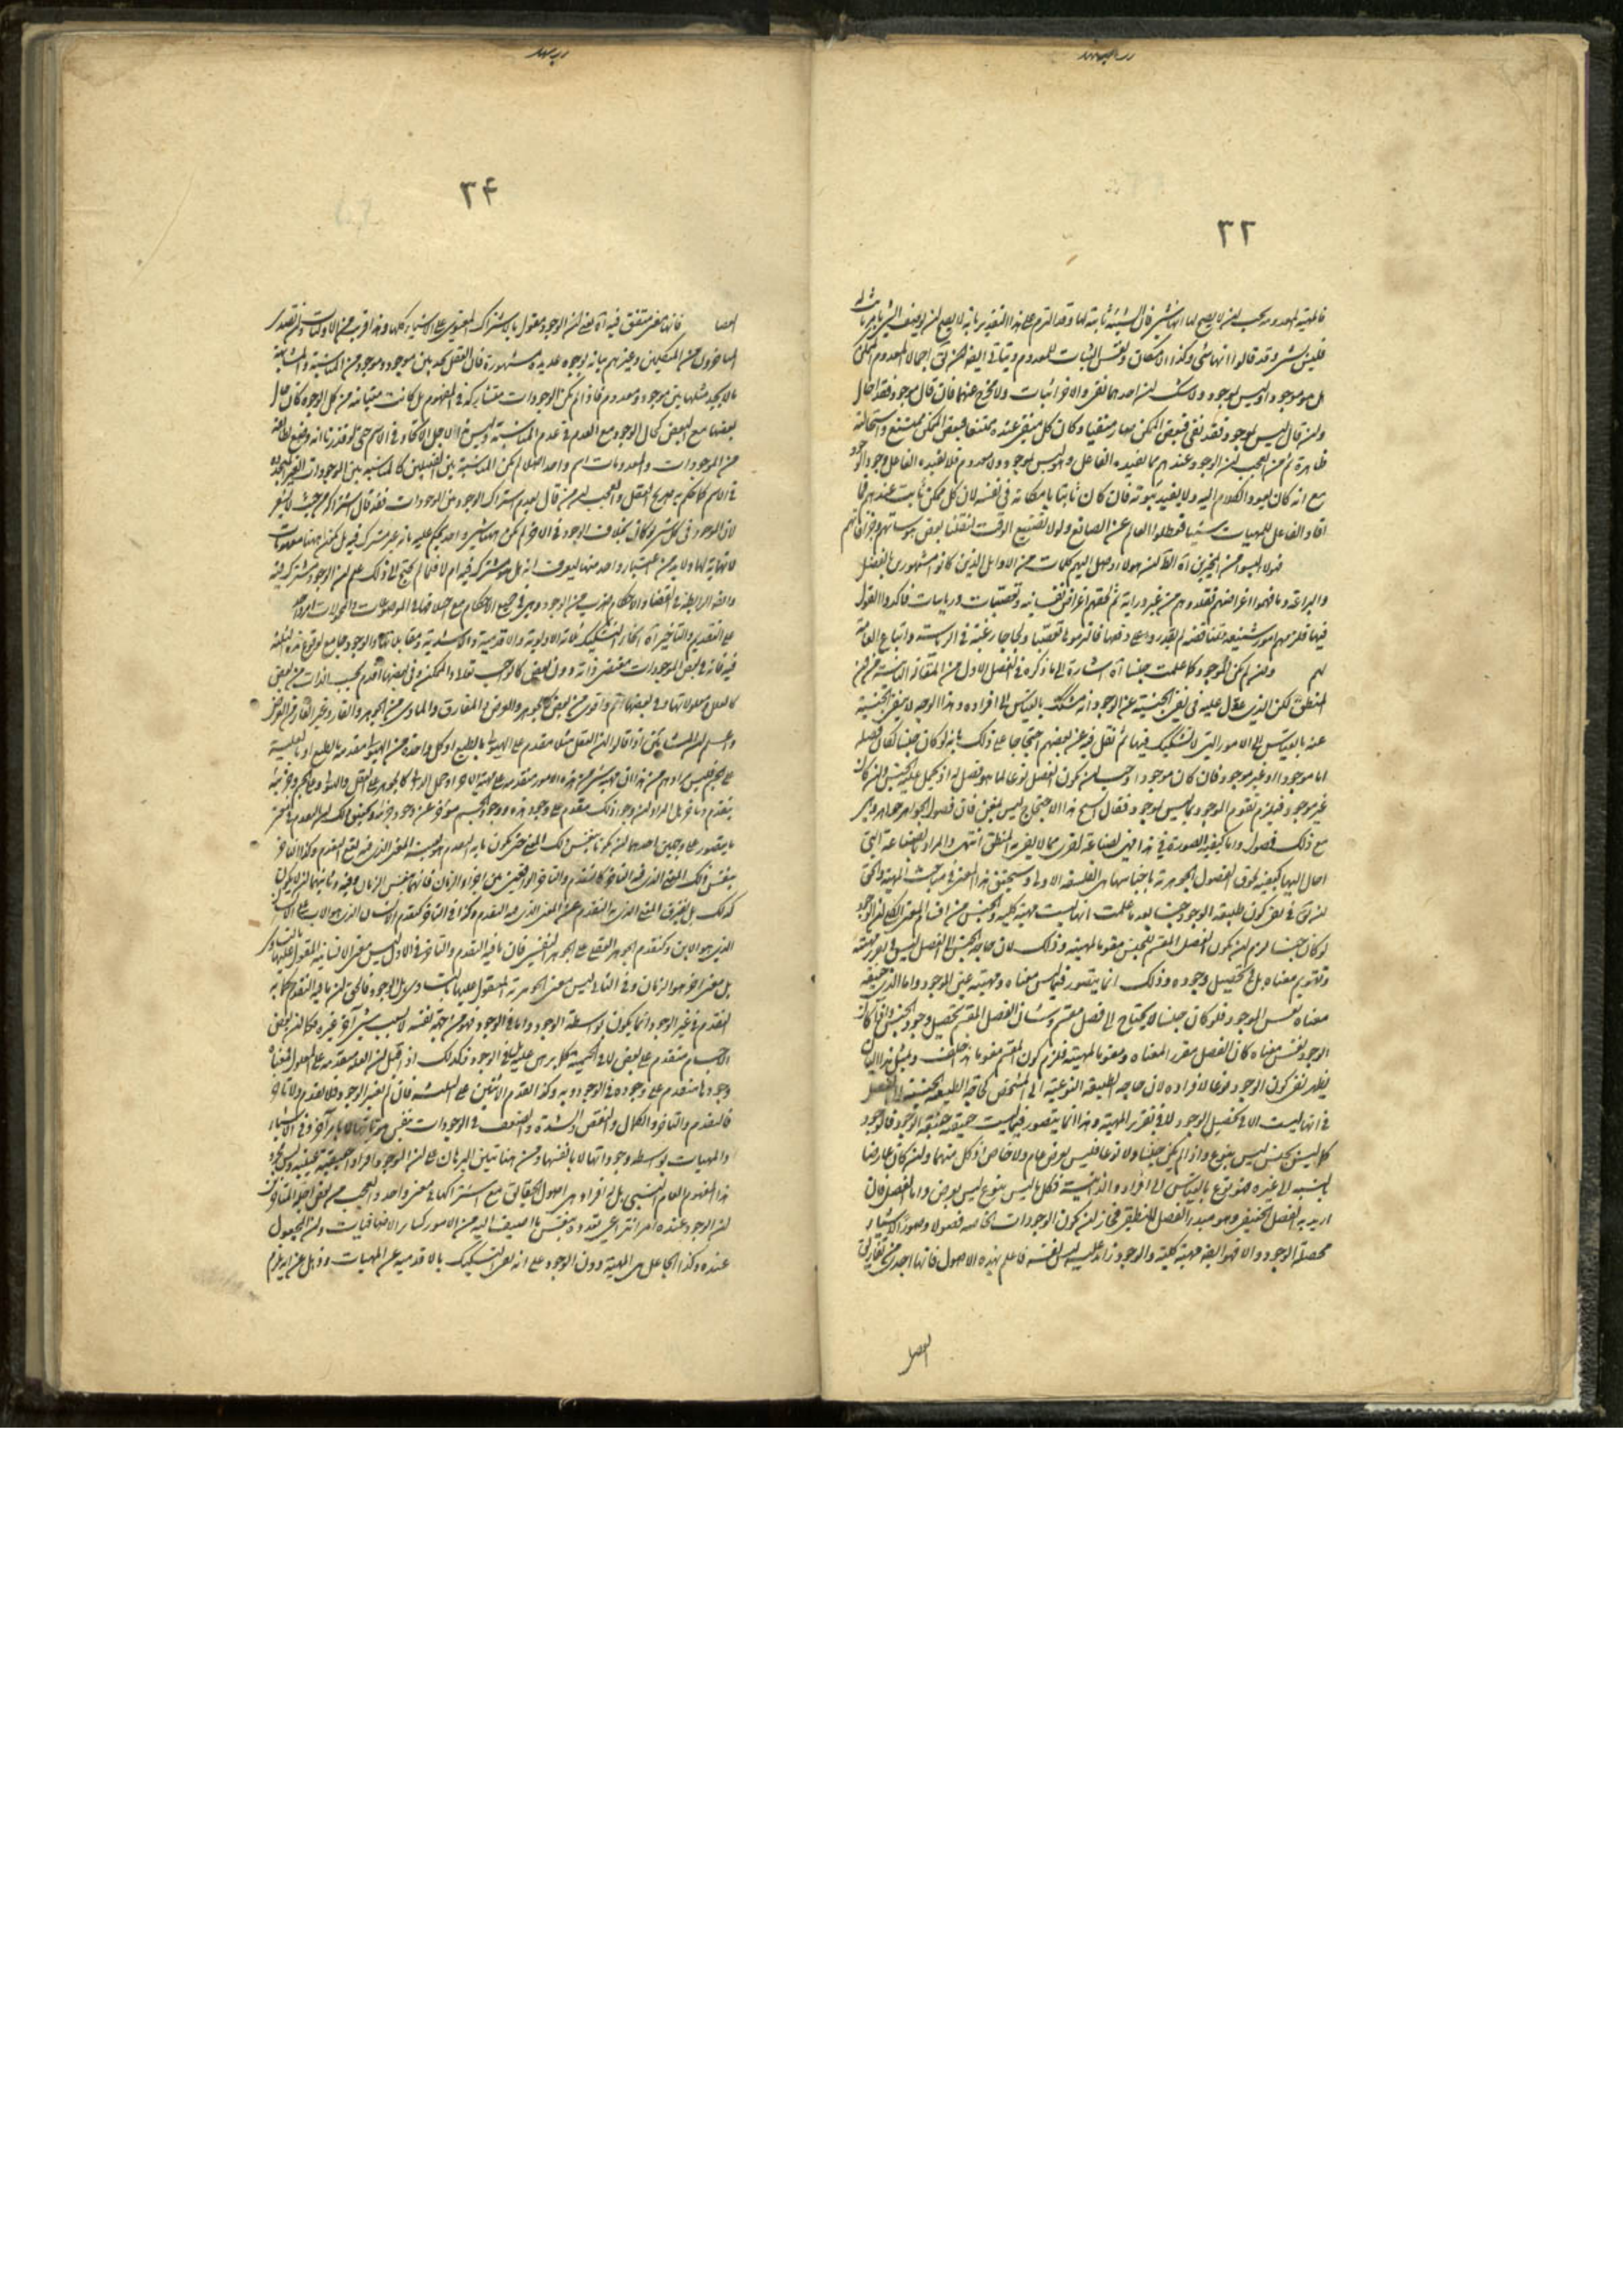 ٣٣
فالمهية المعدومة يجب لن لا يصح لها انها شئ فان الشيئية ثابتة لها وقد التزم على هذا التقدير بانه لا يصح لن يوصف الشئ بامر ثابت له
فليس بشئ وقد قالوا انها شئ وكذا الامكان
هل هو موجود او ليس بموجود ولا شك لن احدهما نفى والاخر اثبات ولا مخرج عنهما فان قال موجود فقد احال
ولن قال ليس بموجود فقد نفى فبعض الممكن صار منفيا وكان كل منفى عنده ممتنعا فبعض الممكن ممتنع واستحالته
ظاهرة ثم من العجب لن الوجود عندهم ما يفيده الفاعل وهو ليس بموجود ولا معدوم فلا يفيده الفاعل وجود الوجود
مع انه كان يعود الكلام اليه ولا يفيد ثبوته فانه كان ثابتا بامكانه فى نفسه لان كل ممكن ثابت عندهم فما
افاد الفاعل للمهيات شيئا فعطلوا العالم عن الصانع ولولا تضييع الوقت لنقلنا بعض هوساتهم وخرافاتهم
من الاوايل الذين كانوا مشهورين بالفضل
والبراعة وما فهموا اغراضهم فقلدوهم من غير دراية ثم لحقهم اغراض نفسانية وتعصبات ورياسات فاكدوا القول
فيها فلزمهم امور شنيعة متناقضة لم يقدروا على دفعها فالتزموها تعصبا ولجاجا رغبة فى الرياسة واتباع العامة
لهم ولن لم يكن الموجود كما علمت جنسا آه اشارة الى ما ذكره فى الفصل الاول من المقالة الثانية من فن
المنطق لكن الذى عول عليه فى نفى الجنسية عن الوجود انه مشكك بالقياس الى افراده وهذا الوجه لا ينفى الجنسية
عنه بالقياس الى الامور التى لا تشكيك فيها ثم نقل فيه عن بعضهم احتجاجا على ذلك بانه لو كان جنسا لكان فصله
اما موجودا او غير موجود فان كان موجودا وجب لن يكون الفصل نوعا لما هو فصل له اذ يحمل عليه الجنس ولن كان
غير موجود فيلزم تقوم الموجود بما ليس بموجود فقال الشيخ هذا الاحتجاج ليس بمغن فان فصول الجواهر جواهر وهى
مع ذلك فصول واما كيفية الصورة فى هذا فهى لصناعة اخرى مما لا يفى به المنطقى انتهى والمراد بالصناعة التى
احال اليها كيفية لحوق الفصول الجوهرية باجناسها هى الفلسفة الاولى وسيجئ تحقيق هذا المعنى فى مباحث المهية والحق
لن يق فى نفى كون طبيعة الوجود جنسا بعد ما علمت انها ليست مهية كلية والجنس من اقسام المعنى الكلى لن الوجود
لو كان جنسا لزم لن يكون الفصل المقسم للجنس مقوما لمهيته وذلك لان حاجة الجنس الى الفصل ليس فى تقرر مهيته
وتقويم معناه بل فى تحصيل وجوده وذلك انما يتصور فيما ليس معناه ومهيته عين الوجود واما الذى حقيقة
معناه نفس الوجود فلو كان جنسا لا يحتاج الى فصل مقسم وشان الفصل المقسم تحصيل وجود الجنس واذا كان
الوجود نفس معناه كان الفصل مقررا لمعناه ومقوما لمهيته فلزم كون المقسم مقوما هذا خلف وبمثل هذا البيان
يظهر نفى كون الوجود نوعا لافراده لان حاجة الطبيعة النوعية الى المشخص كحاجة الطبيعة الجنسية الى الفصل
فى انها ليست الا فى تحصيل الوجود لا فى تقرير المهية وهذا انما يتصور فيما ليست حقيقته حقيقة الوجود فالوجود
كما ليس بجنس ليس بنوع واذا لم يكن جنسا ولا نوعا فليس بعرض عام ولا خاص اذ كل منهما ولن كان عارضا
بالنسبة الى غيره فهو نوع بالقياس الى افراده الذاتية فكل ما ليس بنوع ليس بعرض واما الفصل فان
اريد به الفصل الحقيقى وهو مبدء الفصل المنطقى فجاز لن يكون الوجودات الخاصة فصولا وصور الاشياء
محصلة الوجود والا فهو ايضا مهية كلية والوجود زائد عليه ليس نفسه فاعلم هذه الاصول فانها اجدى من تفاريق
العصا
٣٤
العصا فانه معنى متفق فيه آه يعنى لن الوجود مقول بالاشتراك المعنوى على الاشياء كلها وهذا قريب من الاوليات
المتاخرون من المتكلمين وغيرهم بيانه بوجوه عديدة مشهورة فان العقل يجد بين موجود وموجود من المناسبة والمشابهة
ما لا يجد مثلها بين موجود ومعدوم فاذا لم يكن الموجودات متشاركة فى المفهوم بل كانت متباينة من كل الوجوه كان حال
بعضها مع البعض كحال الوجود مع العدم فى عدم المناسبة وليس هذا لاجل الاتحاد فى الاسم حتى لو قدرنا انه وضع لطائفة
من الموجودات والمعدومات اسم واحد ولم يكن المناسبة بين القبيلين كالمناسبة بين الموجودات الغير المتحدة
فى الاسم كما يحكم به صريح العقل والعجب لن من قال بعدم اشتراك الوجود بين الموجودات فقد قال باشتراكه من حيث لا يشعر
لان الوجود فى كل شئ لو كان بخلاف الوجود فى الاخر لم يكن ههنا شئ واحد يحكم عليه بانه غير مشترك فيه بل يكون ههنا مفهومات
لا نهاية لها ولا بد من اعتبار واحد منها ليعرف انه هل هو مشترك فيه ام لا فلما لم يحتج الى ذلك علم لن الوجود مشترك فيه
وايضا الرابطة فى القضايا والاحكام ضرب من الوجود وهى فى جميع الاحكام مع اختلافها فى الموضوعات والمحمولات امر واحد
على التقديم والتاخير آه انحاء التشكيك ثلثة الاولوية والاقدمية والاشدية ومقابلاتها والوجود جامع لوقوع هذه الثلثة
فيه فانه فى بعض الموجودات مقتضى ذاته دون بعض كالواجب تعالى والممكن وفى بعضها اقدم بحسب الذات من بعض
كالعلل ومعلولاتها وفى بعضها اتم واقوى من بعض كالجوهر والعرض بل المفارق والمادى من الجوهر والقار وغير القار من العرض
واعلم لن المشائين اذا قالوا لن العقل مثلا مقدم على الهيولى بالطبع او كل واحدة من الهيولى والصورة مقدمة بالطبع او بالعلية
على الجسم فليس مرادهم من هذا لن مهية شئ من هذه الامور متقدمة على مهية الاخر
يتقدم وتاخر بل المراد لن وجود ذلك متقدم على وجود هذه ووجود الجسم موخر عن وجود جزئيه وتحقيق ذلك لن التقدم فى معنى
ما يتصور على وجهين احدهما لن يكون بنفس ذلك المعنى حتى يكون ما به التقدم هو بعينه المعنى الذى فيه يقع التقدم وكذا التاخر
بنفس ذلك المعنى الذى فيه التاخر كالتقدم والتاخر الواقعين بين اجزاء الزمان فانهما بنفس الزمان وفيه وثانيهما لن لا يكونا
كذلك بل يفترق المعنى الذى به التقدم عن المعنى الذى فيه التقدم وكذا فى التاخر كتقدم الانسان الذى هو الاب على الانسان
الذى هو الابن وكتقدم الجوهر العقلى على الجوهر النفسى فان ما فيه التقدم والتاخر فى الاول ليس معنى الانسانية المقول عليهما بالتساوى
بل معنى اخر هو الزمان وفى الثانى ليس معنى الجوهرية المقول عليهما بالتساوى بل الوجود فالحق لن ما فيه التقدم كما به
التقدم فى غير الوجود انما يكون بواسطة الوجود واما فى الوجود فهو من جهة نفسه لا بسبب شئ آخر غيره فكما لن بعض
الاجسام متقدم على بعض لا فى الجسمية بل فى الوجود فكذلك اذا قيل لن العلة متقدمة على المعلول فمعناه
وجودها متقدم على وجوده فى الوجود وبه وكذا تقدم الاثنين على الثلثة فان لم يعتبر الوجود فلا تقدم ولا تاخر
فالتقدم والتاخر والكمال والنقص والشدة والضعف فى الوجودات بنفس هوياتها لا بامر آخر وفى الاشياء
والمهيات بواسطة وجوداتها لا بانفسها ومن ههنا تبين البرهان على لن للوجود افرادا حقيقية عينية وليس مجرد
هذا المفهوم العام النسبى بل له افراد هى اصول الحقائق مع اشتراكها فى معنى واحد والعجب من بعض اجلة المتاخرين
لن الوجود عنده امر انتزاعى يتعدد ويتخصص بما اضيف اليه من الامور كسائر الاضافيات ولن المجعول
عنده وكذا الجاعل هى المهية دون الوجود على انه نفى التشكيك بالاقدمية عن المهيات وذهل عن انه يلزم